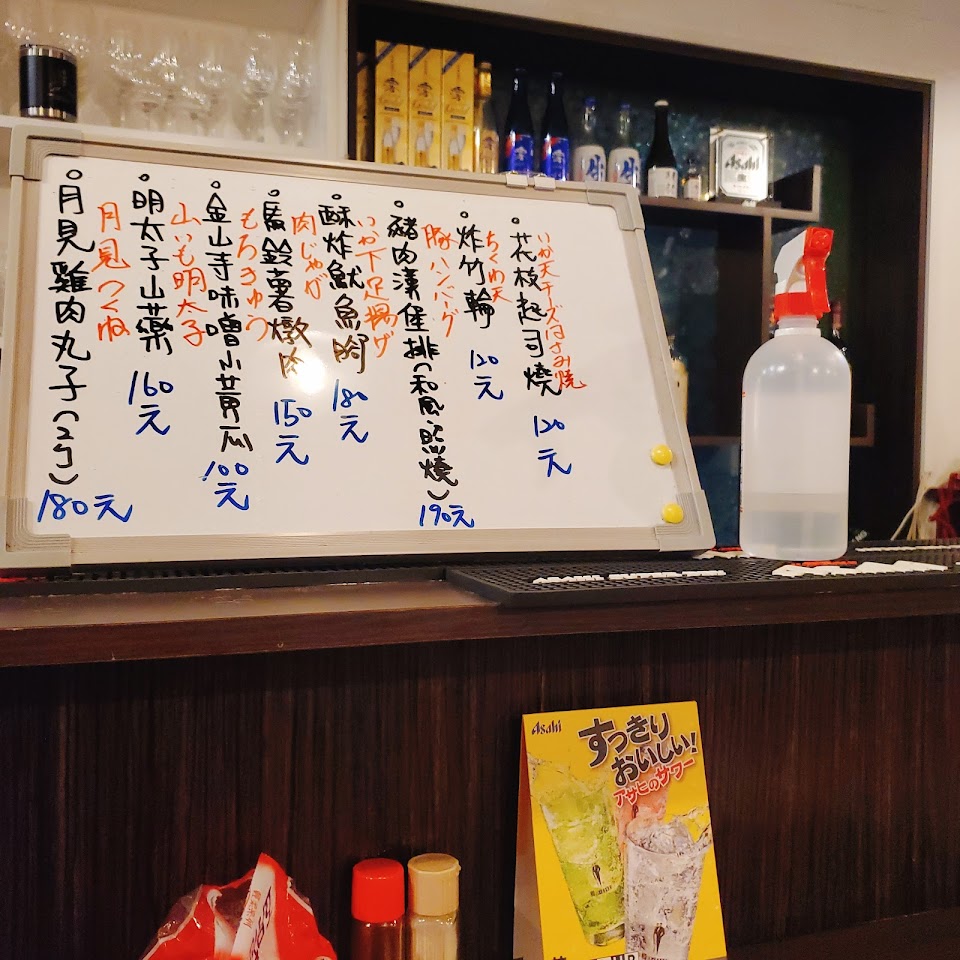 花枝起司燒 120元
いか天チーズはさみ焼
炸竹輪 120元
ちくわ天
豬肉漢堡排(和風、照燒) 190元
豚ハンバーグ
酥炸魷魚腳 180元
いか下足揚げ
馬鈴薯燉肉 150元
肉じゃが
金山寺味噌小黃瓜 100元
もろきゅう
明太子山藥 160元
山いも明太子
月見雞肉丸子(2ケ) 180元
月見つくね
Asahi
Asahi
すっきり
おいしい!
アサヒのサワー